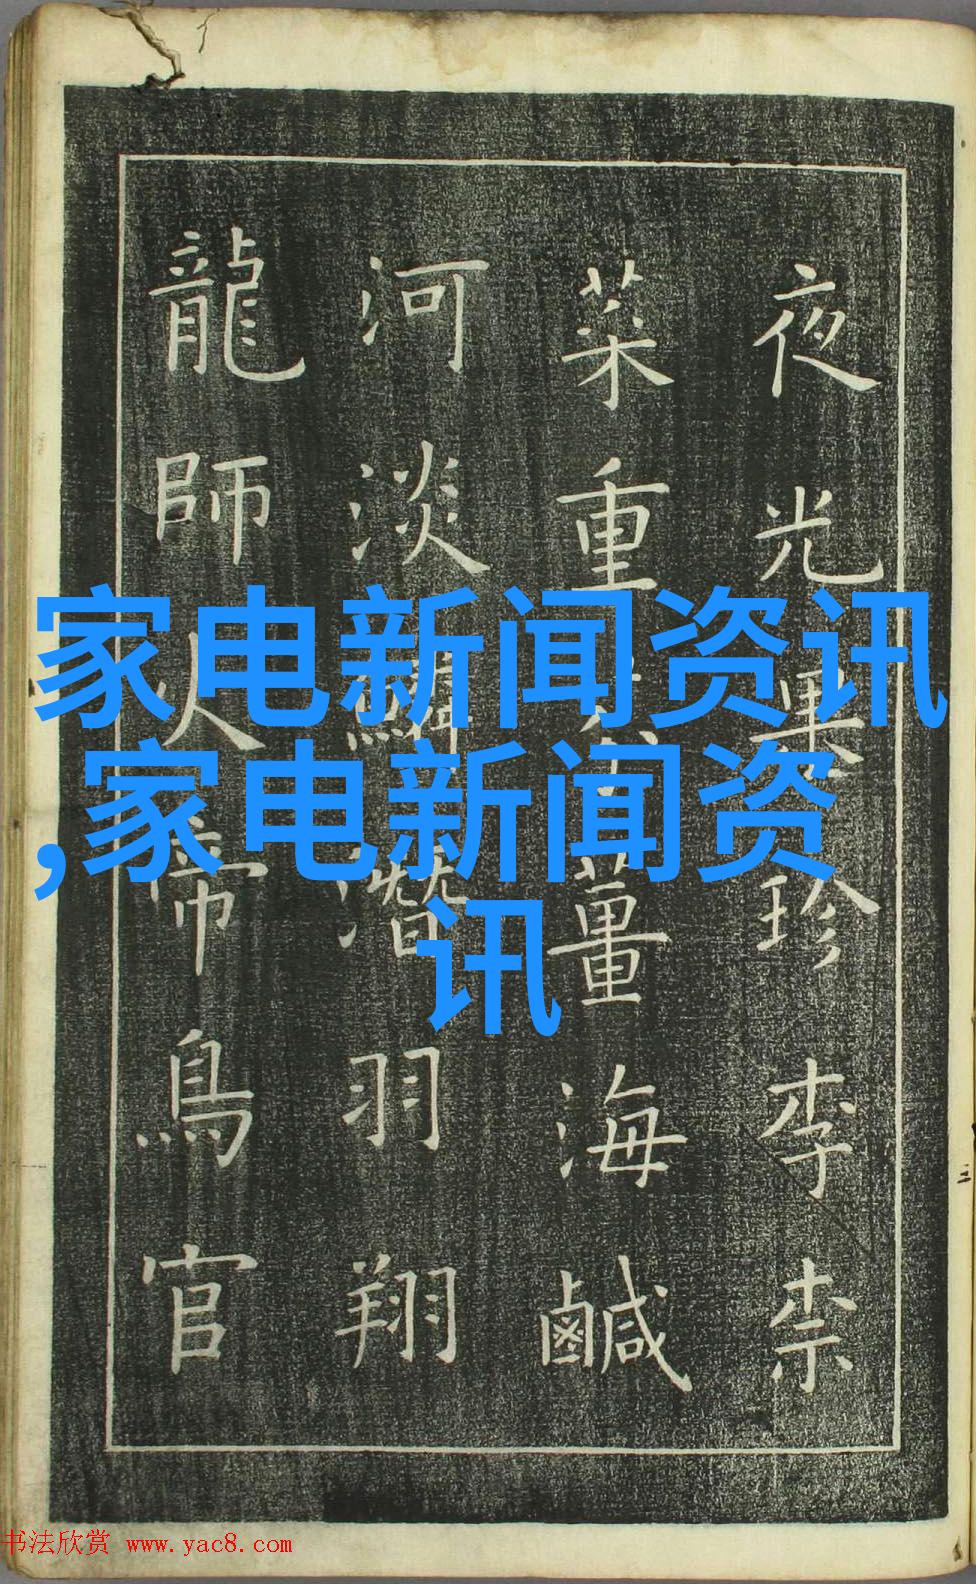 夜光果珍李柰
菜重薑海鹹
河淡鱗潛羽翔
龍師火帝鳥官
家电新闻资讯
,家电新闻资
讯
书法欣赏 www.yac8.com